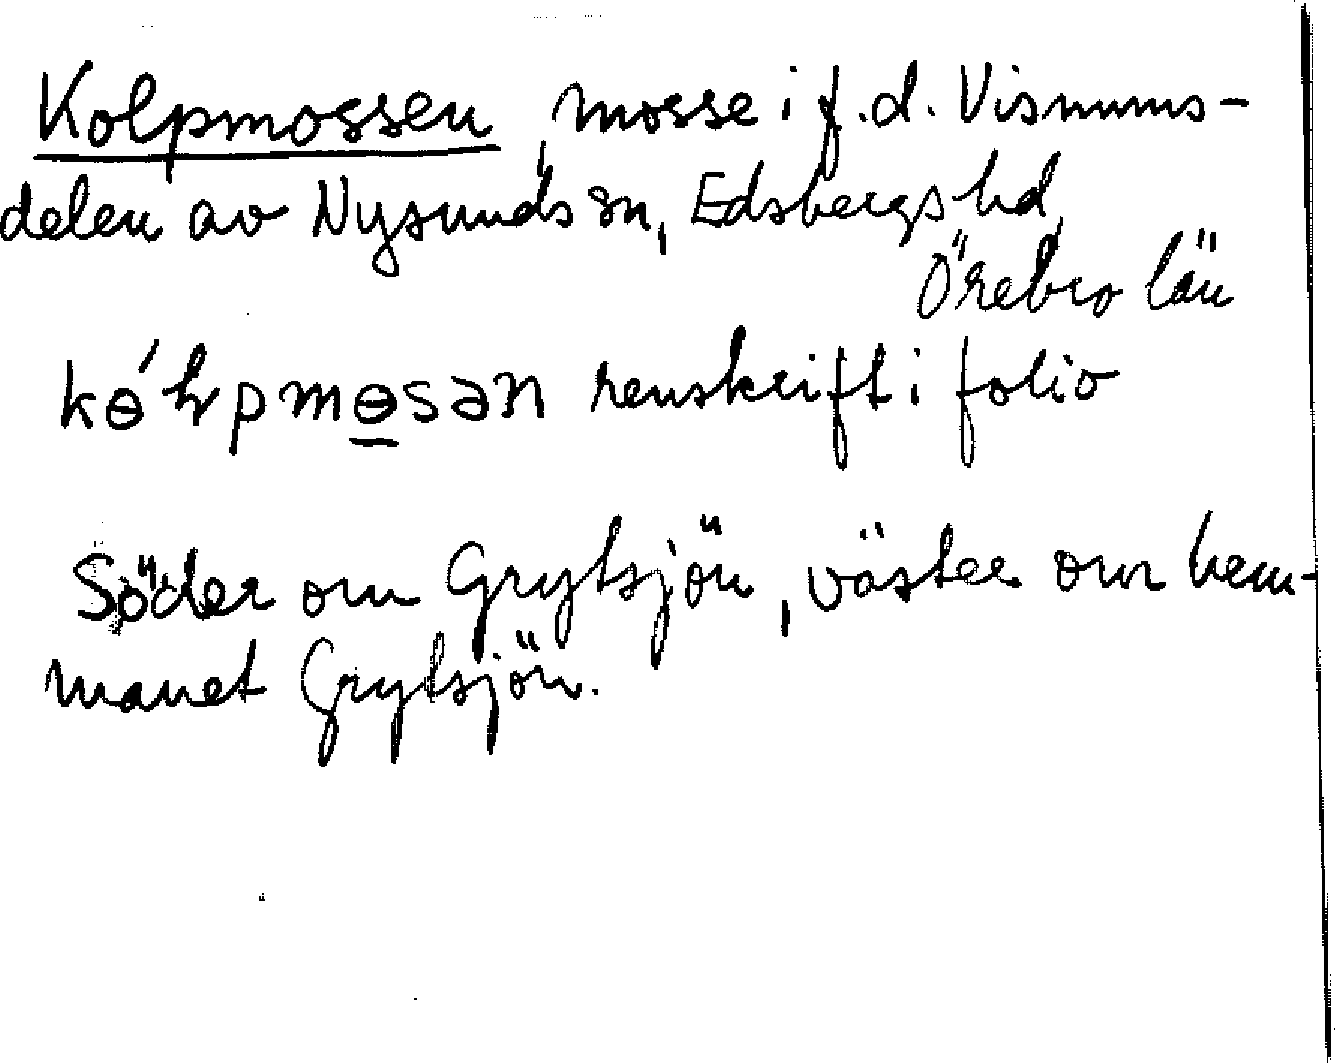 Kolpmossen, mosse i f.d. Visnums-
delen av Nysunds sn, Edsbergs hd,
Örebro län
kɵ́lpmɵsən renskrift i folio
Söder om Grytsjön, väster om hem-
manet Grytsjön.